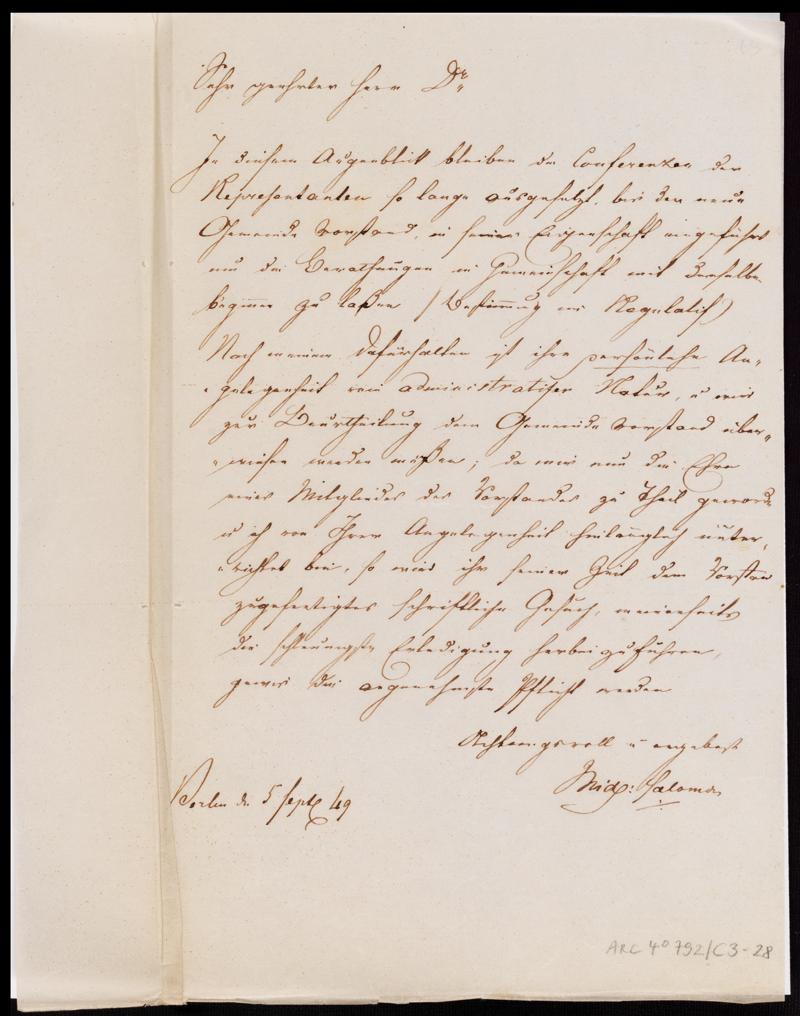 Sehr geehrter Herr Dr
In diesem Augenblick bleiben die Conferenzen der
Representanten so lange ausgesetzt, bis der neue
Gemeinde Vorstand, in seiner Eigenschaft eingeführt
um die Berathungen in Gemeinschaft mit demselben
beginnen zu laßen (Bestimmung im Regulatif)
Nach meinem Dafürhalten ist ihre persönliche An-
gelegenheit rein administratifer Natur, u wird
zur Beurtheilung dem Gemeinde Vorstand über-
wiesen werden müßen; da mir nun die Ehre
eines Mitgliedes des Vorstandes zu Theil geworden
u ich von Ihrer Angelegenheit hinlänglich unter-
richtet bin, so wird ihr seiner Zeit dem Vorstan
zugefertigtes schriftliche Gesuch, meinerseits
die schleunigste Erledigung herbeizuführen,
gewis die angenehmste Pflicht werden
Achtungsvoll u ergebenst
Salomon
Berlin d. 5 Sept 49
ARC 4° 792/C3-28